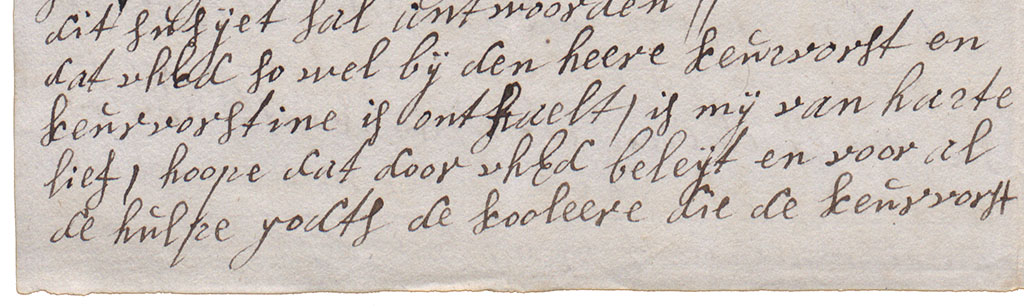 dit subyet sal antwoorden //
dat vhEd so wel bÿ den heere keurvorst en
keurvorstine is onthaelt / is mÿ van harte
lief / hoope dat door vhEd beleÿt en voor al
de hulpe godts de kooleere die de keurvorst